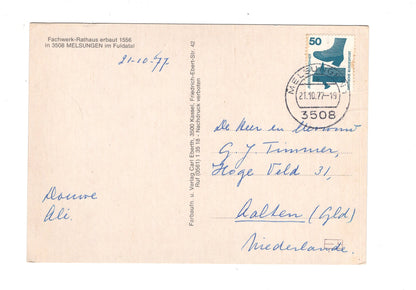 Fachwerk-Rathaus erbaut 1556
in 3508 MELSUNGEN im Fuldatal
21-10-'77
Douwe
Ali.
Farbaufn. u. Verlag Carl Eberth, 3500 Kassel, Friedrich-Ebert-Str. 42
Ruf (0561) 1 35 18 - Nachdruck verboten
50
MELSUNGEN 1
21.10.77-19
3508
De Heer en Mevrouw
G. J. Timmer,
Hoge Veld 31,
Aalten (Gld)
Niederlande.